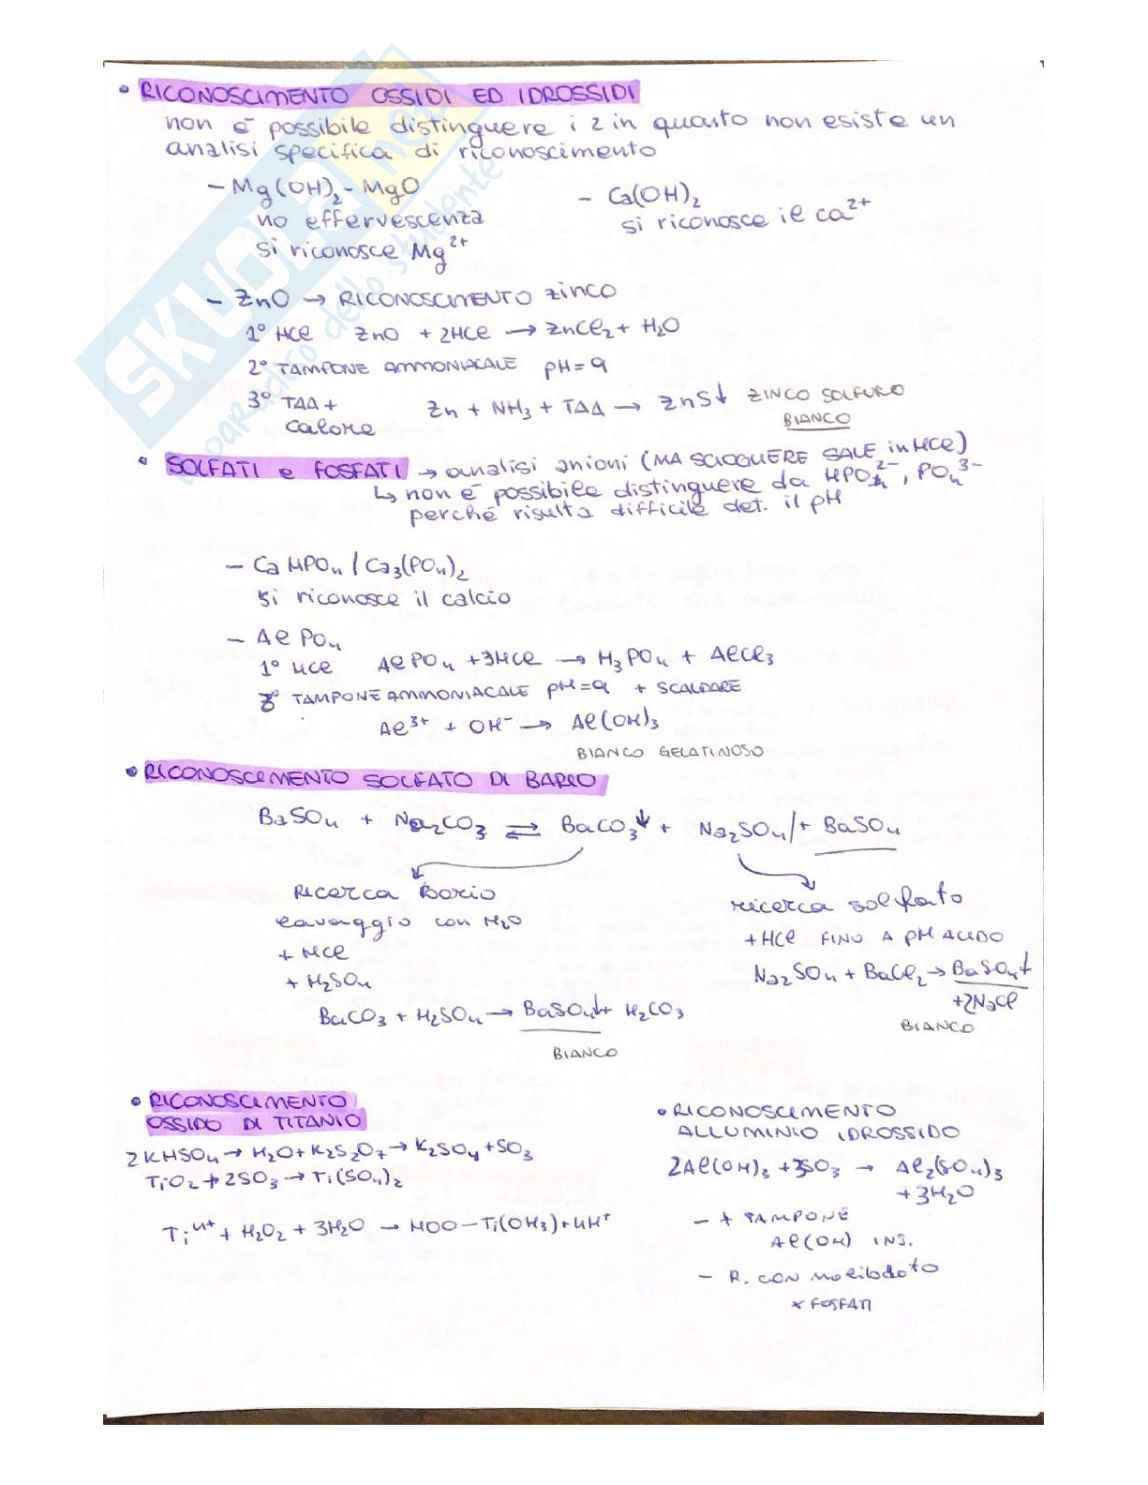 • RICONOSCIMENTO OSSIDI ED IDROSSIDI
non è possibile distinguere i 2 in quanto non esiste un
analisi specifica di riconoscimento
- Mg(OH)₂ - MgO
no effervescenza
si riconosce Mg²⁺
- Ca(OH)₂
si riconosce il Ca²⁺
- ZnO → RICONOSCIMENTO zinco
1° HCl ZnO + 2HCl → ZnCl₂ + H₂O
2° TAMPONE AMMONIACALE pH = 9
3° TAA +
calore
Zn + NH₃ + TAA → ZnS↓ ZINCO SOLFURO
BIANCO
• SOLFATI e FOSFATI → analisi anioni (MA SCIOGLIERE SALE in HCl)
↳ non è possibile distinguere da HPO₄²⁻, PO₄³⁻
perché risulta difficile det. il pH
- CaHPO₄ / Ca₃(PO₄)₂
si riconosce il calcio
- AlPO₄
1° HCl AlPO₄ + 3HCl → H₃PO₄ + AlCl₃
2° TAMPONE AMMONIACALE pH = 9 + SCALDARE
Al³⁺ + OH⁻ → Al(OH)₃
BIANCO GELATINOSO
• RICONOSCIMENTO SOLFATO DI BARIO
BaSO₄ + Na₂CO₃ ⇌ BaCO₃↓ + Na₂SO₄ /+ BaSO₄
Ricerca Bario
lavaggio con H₂O
+ HCl
+ H₂SO₄
BaCO₃ + H₂SO₄ → BaSO₄↓ + H₂CO₃
BIANCO
ricerca solfato
+ HCl FINO A pH ACIDO
Na₂SO₄ + BaCl₂ → BaSO₄↓
+ 2NaCl
BIANCO
• RICONOSCIMENTO
OSSIDO DI TITANIO
2KHSO₄ → H₂O + K₂S₂O₇ → K₂SO₄ + SO₃
TiO₂ + 2SO₃ → Ti(SO₄)₂
Ti⁴⁺ + H₂O₂ + 3H₂O → HOO-Ti(OH₃) + 4H⁺
• RICONOSCIMENTO
ALLUMINIO IDROSSIDO
2Al(OH)₃ + 3SO₃ → Al₂(SO₄)₃
+ 3H₂O
- + TAMPONE
Al(OH) INS.
- R. con molibdato
x FOSFATI
SKUOLA.net
il paradiso dello studente